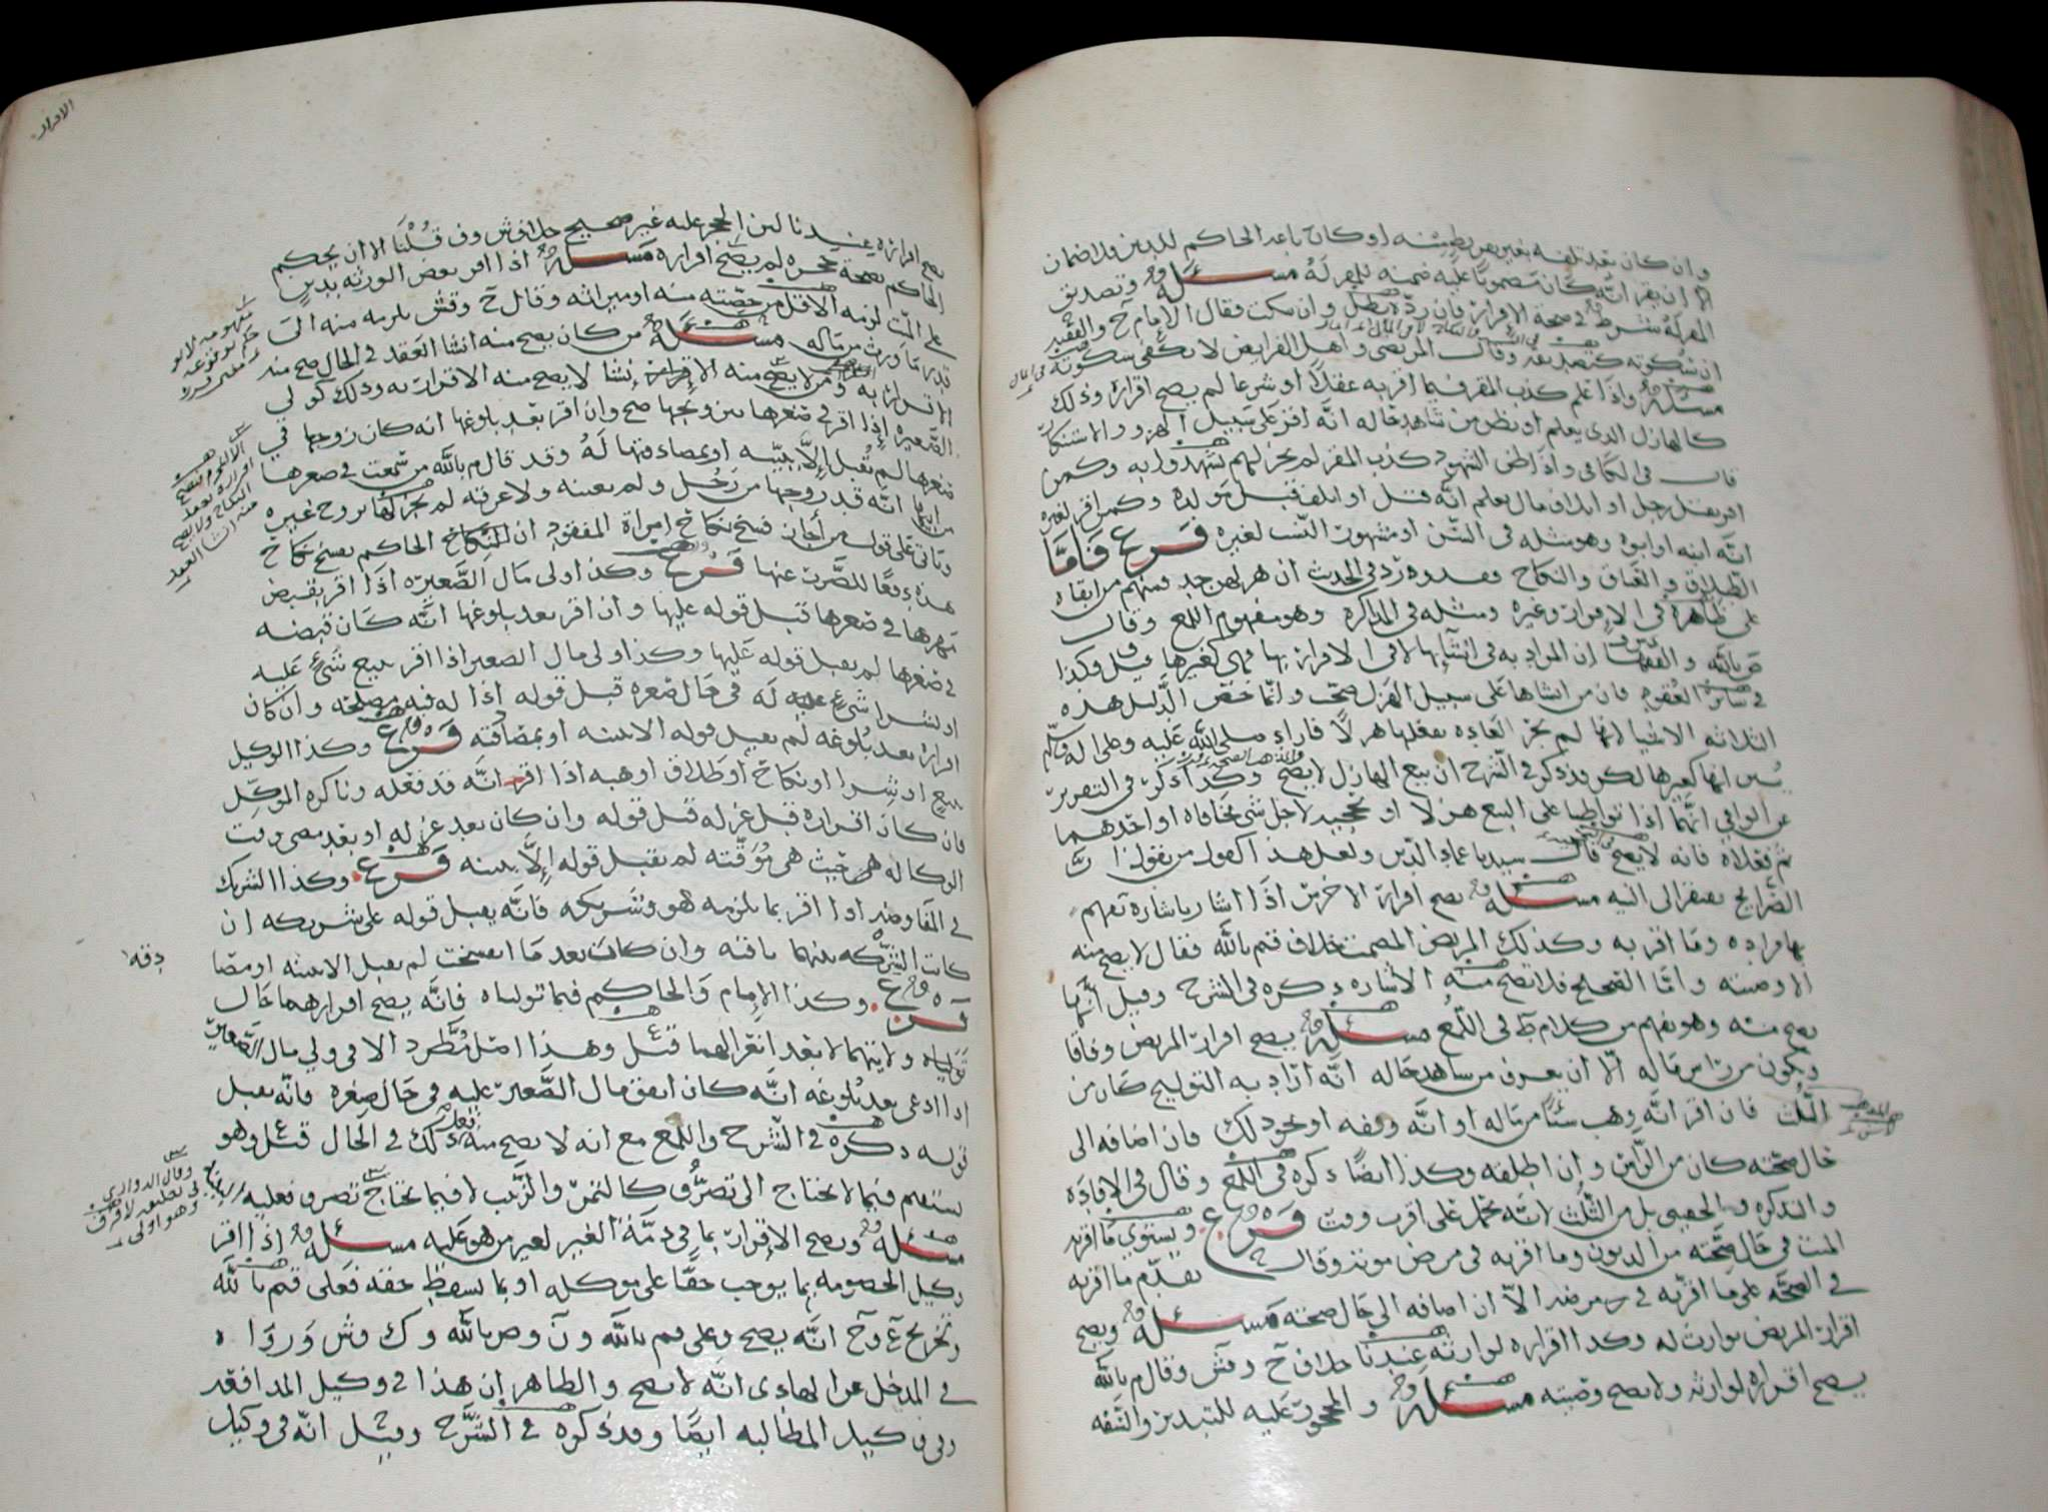 وان كان بعد تلفه بغير او كان باعه الحاكم للدين ولا ضمان
الا ان يقر انه كان مضمونا عليه ضمنه للمقر له مسئله وتصديق
المقر له شرط في صحة الاقرار فان رد بطل وان سكت فقال الامام ح والفقيه
ان سكوته كتصديقه وقال المرتضى واهل الفرايض لا يكفي سكوته
مسئله واذا علم كذب المقر فيما اقر به عقلا او شرعا لم يصح اقراره وذلك
كالهازل الذي يعلم او يظن من شاهد حاله انه اقر على سبيل الهزو والاستنكار
قال في الكافي واذا ظن الشهود كذب المقر لم يجز لهم ليشهدوا به وكمن
اقر بقتل رجل او اتلاف مال يعلم انه قتل او اتلف قبل مولده وكمن اقر لغيره
انه ابنه او ابوه وهو مثله في السن او مشهور النسب لغيره فرع فاما
الطلاق والعتاق والنكاح فقد ورد في الحديث ان هزلهن جد فمنهم من ابقاه
على ظاهره في الاقرار وغيره ومثله في المذاكره وهو مفهوم اللمع وقال
ص بالله والفقها ان المراد به في انشائها لا في الاقرار بها فهي كغيرها قيل وكذا
في سائر العقود فان من انشاها على سبيل الهزل صحت وانما خص الدليل هذه
الثلاثه الاشيا لانها لم تجر العاده بفعلها هزلا فاراد صلى الله عليه وعلى اله وسلم
يبين انها كغيرها لكن قد ذكر في الشرح ان بيع الهازل لا يصح وكذا ذكر في التقرير
عن الوافي انهما اذا تواطيا على البيع هزلا او تلجيه لاجل شي يخافاه او احدهما
ثم فعلاه فانه لا يصح قال سيدنا عماد الدين ولعل هذا اكقول من يقول ان
الصرايح تفتقر الى النيه مسئله يصح اقرار الاخرس اذا اشار باشارة تفهم
بها مراده وما اقر به وكذلك المريض المصمت خلاف قم بالله فقال لا يصح منه
الا وصيته واما الصحيح فلا تصح منه الاشاره ذكره في الشرح وقيل انها
تصح منه وهو يفهم من كلام ط في اللمع مسئله يصح اقرار المريض وفاقا
ويكون من راس ماله الا ان يعرف من شاهد حاله انه اراد به التوليج كان من
الثلث فان اقر انه وهب شيئا من ماله او انه وقفه او نحو ذلك فان اضافه الى
حال صحته كان من الراس وان اطلقه وكذا ايضا ذكره في اللمع وقال في الافاده
والتذكره والحفيظ بل من الثلث لانه يحمل على اقرب وقت فرع ويستوي ما اقر به
الميت في حال صحته من الديون وما اقر به في مرض موته وقال ح يقدم ما اقر به
في الصحه على ما اقر به في مرضه الا ان اضافه الى حال صحته مسئله ويصح
اقرار المريض بوارث له وكذا اقراره لوارثه عندنا خلاف ح وقش وقال م بالله
يصح اقراره لوارثه ولا يصح وصيته مسئله والمحجور عليه للتبذير والسفه
الاقرار
يصح اقراره عندنا لان الحجر عليه غير صحيح خلاف ش وف قلنا الا ان يحكم
الحاكم بصحة حجره لم يصح اقراره مسئله اذا اقر بعض الورثه بدين
على الميت لزمه الاقل من حصته منه او ميراثه وقال ح وقش يلزمه منه الى
قدر ما ورث من ماله مسئله من كان يصح منه انشا العقد في الحال صح منه
الاقرار به ومن لا يصح منه الانشا لا يصح منه الاقرار به وذلك كولي
الصغيره اذا اقر في صغرها بتزويجها صح وان اقر بعد بلوغها انه كان زوجها في
صغرها لم يقبل الا ببينه او بمصادقتها له وقد قال م بالله من سمعت في صغرها
من ابيها انه قد زوجها من رجل ولم يعينه ولا عرفته لم يجز لها تزوج غيره
وياتي على قول من اجاز فسخ نكاح امراة المفقود ان الحاكم يفسخ نكاح
هذه دفعا للضرر عنها فرع وكذا ولي مال الصغيره اذا اقر بقبض
مهرها في صغرها قبل قوله عليها وان اقر بعد بلوغها انه كان قبضه
في صغرها لم يقبل قوله عليها وكذا ولي مال الصغير اذا اقر ببيع شي عليه
او بشرا شي له في حال صغره قبل قوله اذا له فيه مصلحه وان كان
اقراره بعد بلوغه لم يقبل قوله الا ببينه او بمصادقته فرع وكذا الوكيل
ببيع او شرا او نكاح او طلاق او هبه اذا اقر انه قد فعله وناكره الموكل
فان كان اقراره قبل عزله قبل قوله وان كان بعد عزله او بعد مضي وقت
الوكاله حيث هي مؤقته لم يقبل قوله الا ببينه فرع وكذا الشريك
في المفاوضه اذا اقر بما يلزمه هو وشريكه فانه يقبل قوله على شريكه ان
كانت الشركه بينهما باقيه وان كان بعد ما انفسخت لم يقبل الا ببينه او مصا
دقه
فرع وكذا الامام والحاكم فيما تولياه فانه يصح اقرارهما حال
ولايتهما لا بعد انعزالهما قيل وهذا اصل مطرد الا في ولي مال الصغير
اذا ادعى بعد بلوغه انه كان انفق مال الصغير عليه في حال صغره فانه يقبل
قوله ذكره في الشرح واللمع مع انه لا يصح منه فعل ذلك في الحال قيل وهو
يستقيم فيما لا يحتاج الى تصرف كالتمر والزبيب لا فيما يحتاج تصرف فعليه البينه
وقال الدواري
في تعليقه لا فرق
وهو اولى
مسئله ويصح الاقرار بما في ذمة الغير لغير من هو عليه مسئله اذا اقر
وكيل الخصومه بما يوجب حقا على موكله او بما يسقط حقه فعلى قم بالله
وتخريج ع وح انه يصح وعلى قم بالله ون وص بالله وك وش ورواه
في المدخل عن الهادي انه لا يصح والظاهر ان هذا في وكيل المدافعه
وفي وكيل المطالبه ايضا وقد ذكره في الشرح وقيل انه في وكيل